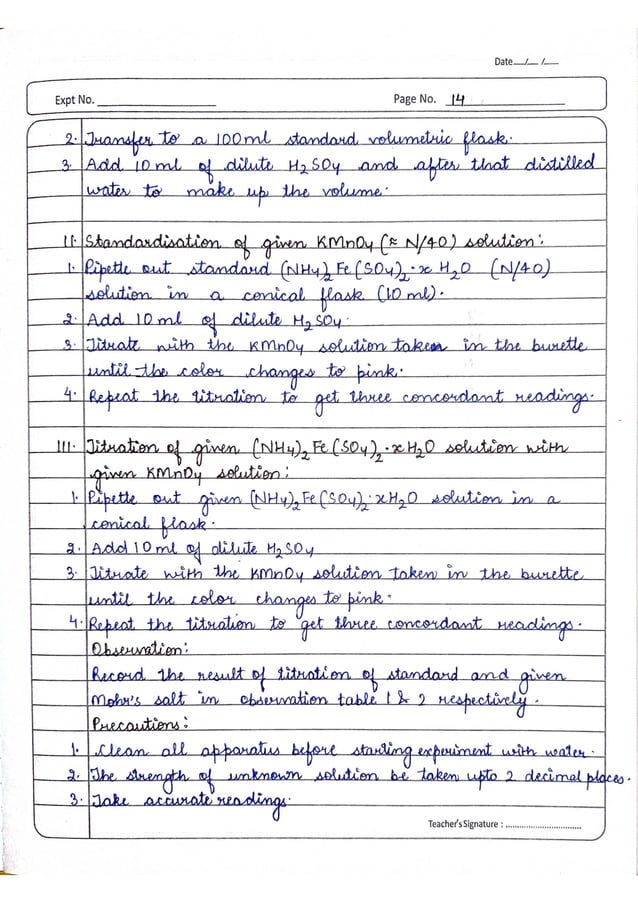 Date __/__ /__
Expt No. ____________ Page No. 14
2. Transfer to a 100ml standard volumetric flask.
3. Add 10 ml of dilute H2SO4 and after that distilled
water to make up the volume.
II. Standardisation of given KMnO4 (≈ N/40) solution:
1. Pipette out standard (NH4)2 Fe(SO4)2·x H2O (N/40)
solution in a conical flask (10 ml).
2. Add 10 ml of dilute H2SO4.
3. Titrate with the KMnO4 solution taken in the burette
until the color changes to pink.
4. Repeat the titration to get three concordant readings.
III. Titration of given (NH4)2 Fe(SO4)2·xH2O solution with
given KMnO4 solution:
1. Pipette out given (NH4)2 Fe(SO4)2·xH2O solution in a
conical flask.
2. Add 10 ml of dilute H2SO4
3. Titrate with the KMnO4 solution taken in the burette
until the color changes to pink.
4. Repeat the titration to get three concordant readings.
Observation:
Record the result of titration of standard and given
Mohr's salt in observation table 1 & 2 respectively.
Precautions:
1. Clean all apparatus before starting experiment with water.
2. The strength of unknown solution be taken upto 2 decimal places.
3. Take accurate readings.
Teacher's Signature : ................................